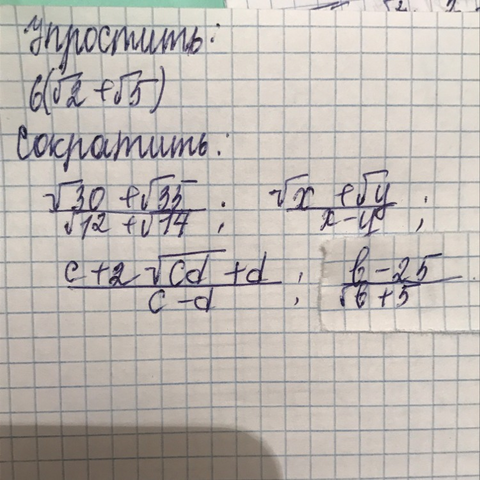 Упростить:
6(√2 + √5)
Сократить:
(√30 + √35)/(√12 + √14); (√x + √y)/(x - y);
(c + 2√cd + d)/(c - d); (b - 25)/(√b + 5)